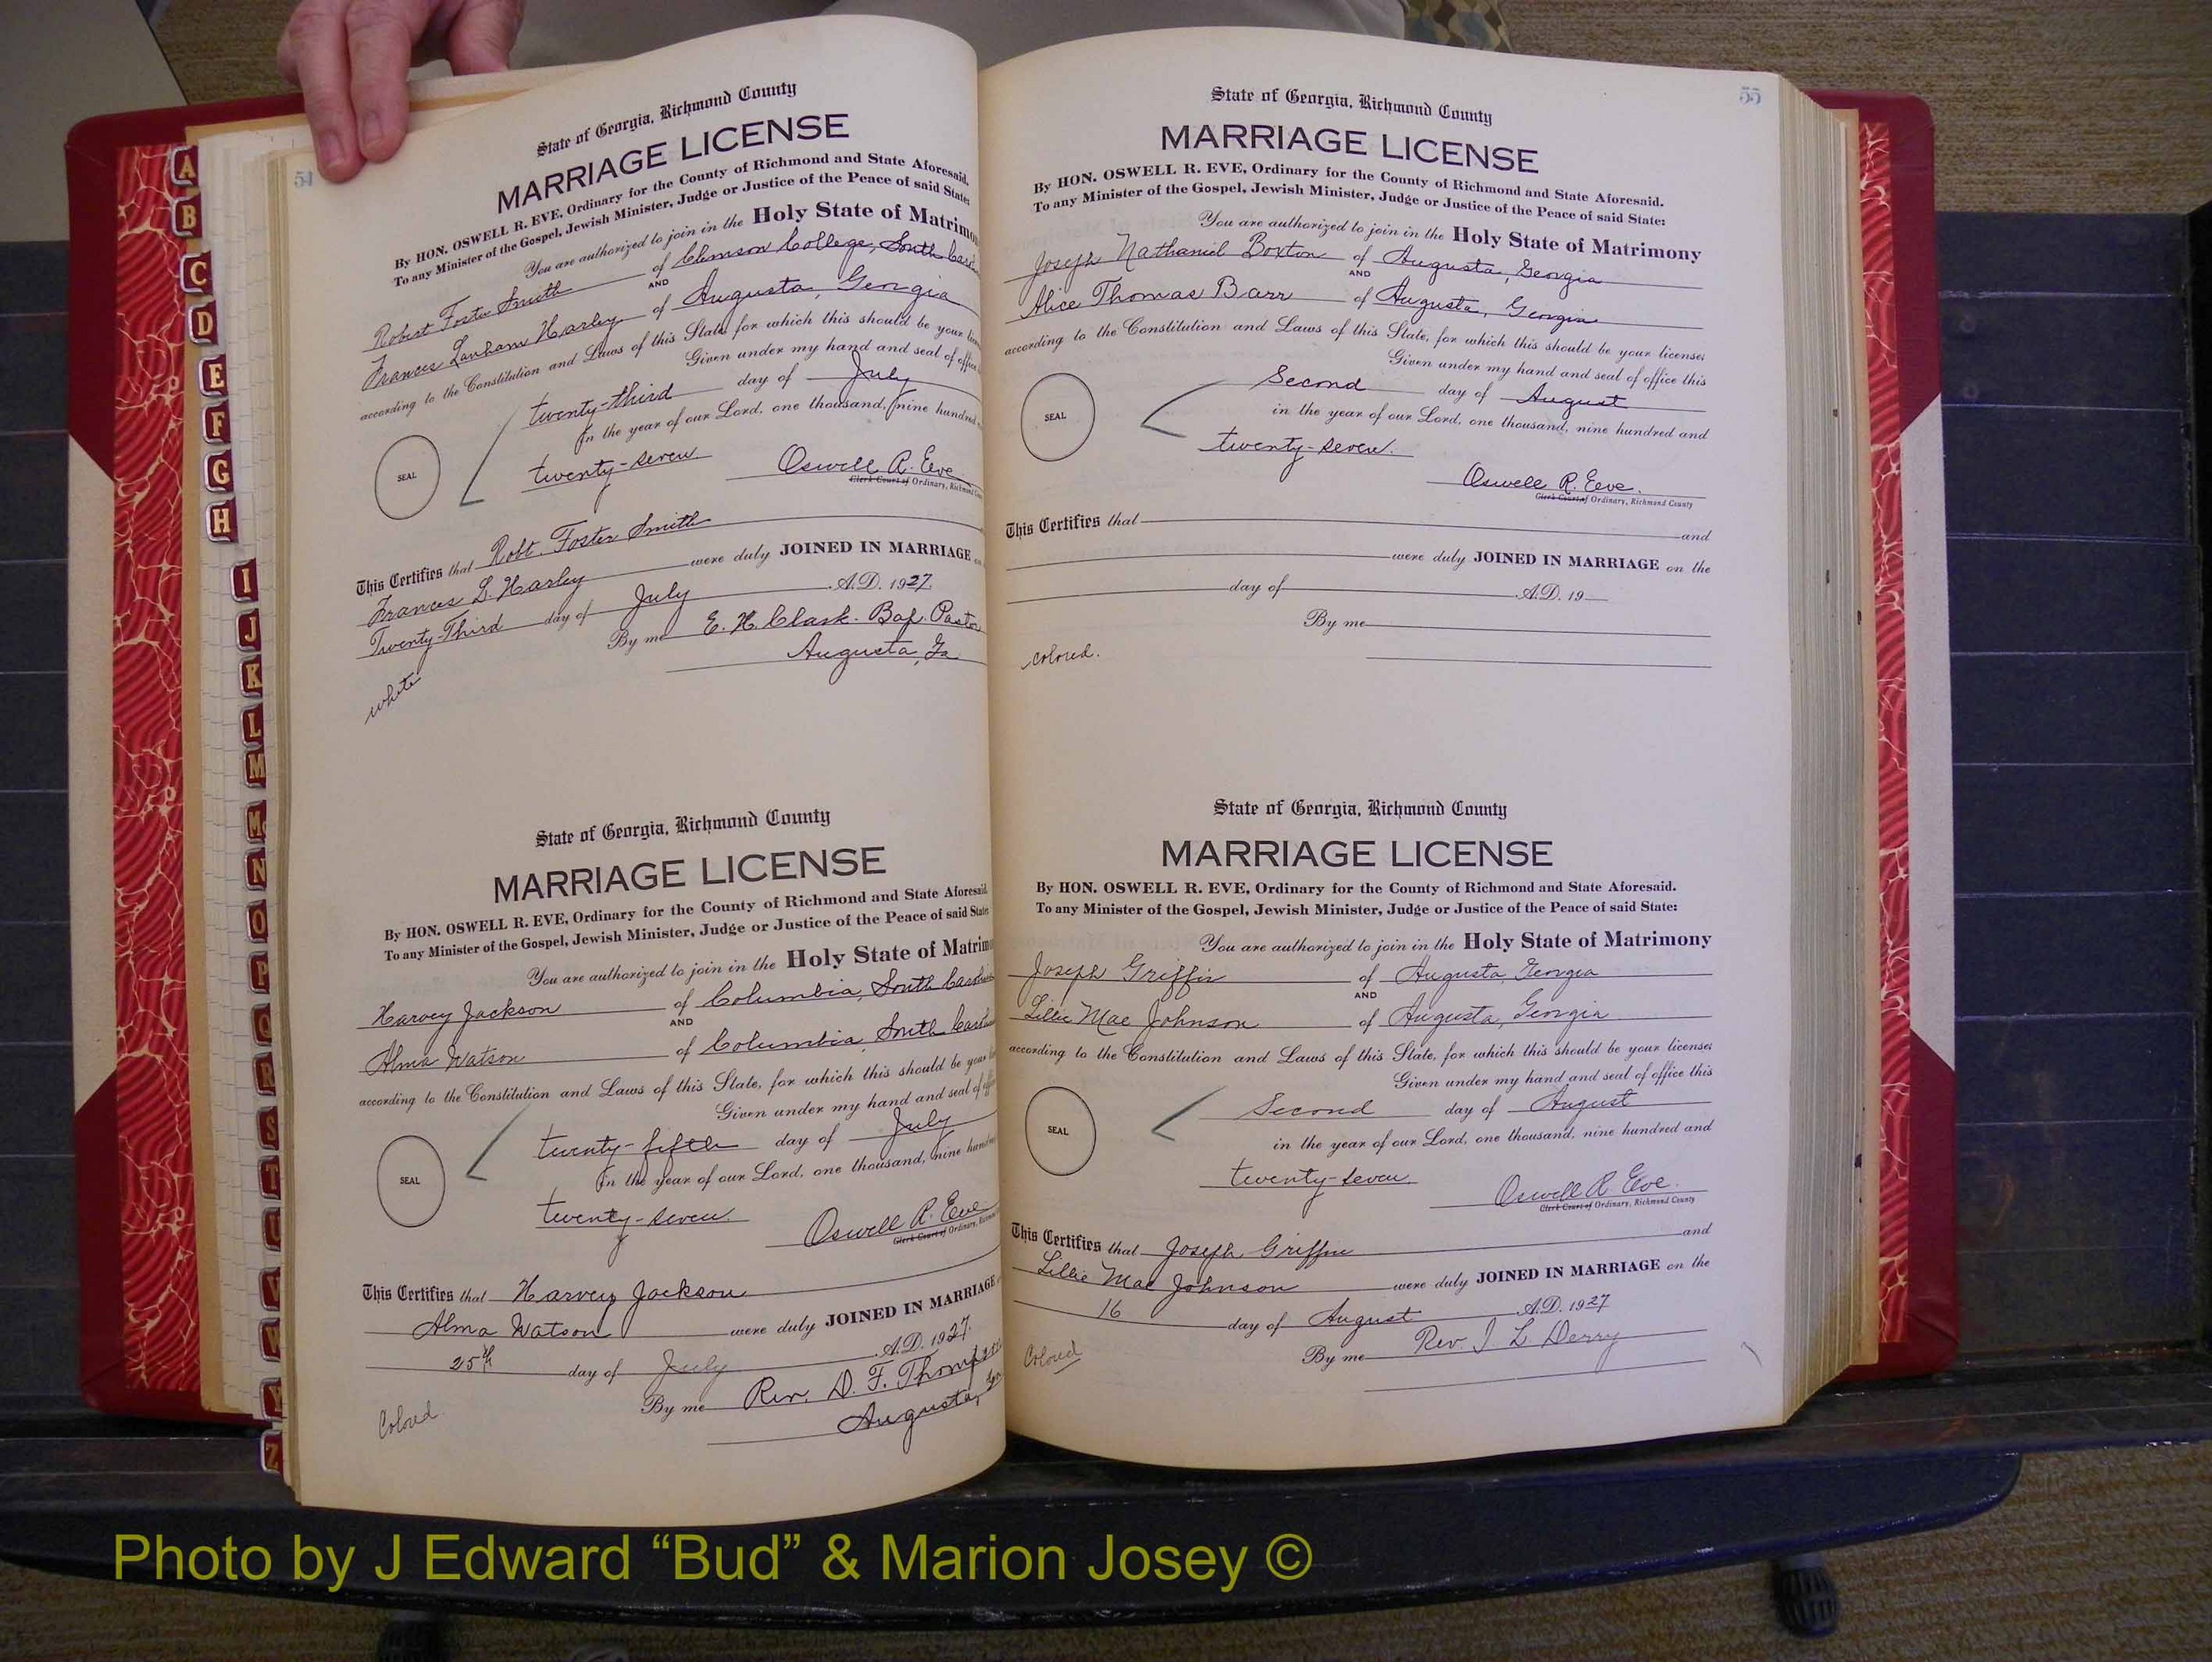 54
State of Georgia, Richmond County
MARRIAGE LICENSE
By HON. OSWELL R. EVE, Ordinary for the County of Richmond and State Aforesaid.
To any Minister of the Gospel, Jewish Minister, Judge or Justice of the Peace of said State:
You are authorized to join in the Holy State of Matrimo
Robert Foster Smith of Clemson College, South Caro
AND
Frances Lanham Harley of Augusta, Georgia
according to the Constitution and Laws of this State, for which this should be your lice
Given under my hand and seal of office
twenty-third day of July
In the year of our Lord, one thousand, nine hundred
SEAL
twenty-seven
Oswell R. Eve
Clerk Court of Ordinary, Richmond
This Certifies that Robt. Foster Smith
Frances L. Harley were duly JOINED IN MARRIAGE
Twenty-Third day of July A.D. 1927
By me E. H. Clark. Bap. Pastor
Augusta, Ga
white
State of Georgia, Richmond County
MARRIAGE LICENSE
By HON. OSWELL R. EVE, Ordinary for the County of Richmond and State Aforesaid.
To any Minister of the Gospel, Jewish Minister, Judge or Justice of the Peace of said State:
You are authorized to join in the Holy State of Matrimo
Harvey Jackson of Columbia, South Carolina
AND
Alma Watson of Columbia, South Caro
according to the Constitution and Laws of this State, for which this should be your
Given under my hand and seal of
twenty-fifth day of July
In the year of our Lord, one thousand, nine hund
SEAL
twenty-seven.
Oswell R. Eve
Clerk Court of Ordinary,
This Certifies that Harvey Jackson
Alma Watson were duly JOINED IN MARRIAGE
25th day of July A.D. 1927.
By me Rev. D. F. Thompson
Augusta, Ga
Colored
55
State of Georgia, Richmond County
MARRIAGE LICENSE
By HON. OSWELL R. EVE, Ordinary for the County of Richmond and State Aforesaid.
To any Minister of the Gospel, Jewish Minister, Judge or Justice of the Peace of said State:
You are authorized to join in the Holy State of Matrimony
Joseph Nathaniel Boxton of Augusta, Georgia
AND
Alice Thomas Barr of Augusta, Georgia
according to the Constitution and Laws of this State, for which this should be your license:
Given under my hand and seal of office this
Second day of August
in the year of our Lord, one thousand, nine hundred and
SEAL
twenty-seven.
Oswell R. Eve.
Clerk Court of Ordinary, Richmond County
This Certifies that
and
were duly JOINED IN MARRIAGE on the
day of A.D. 19
By me
colored.
State of Georgia, Richmond County
MARRIAGE LICENSE
By HON. OSWELL R. EVE, Ordinary for the County of Richmond and State Aforesaid.
To any Minister of the Gospel, Jewish Minister, Judge or Justice of the Peace of said State:
You are authorized to join in the Holy State of Matrimony
Joseph Griffin of Augusta, Georgia
AND
Lillie Mae Johnson of Augusta, Georgia
according to the Constitution and Laws of this State, for which this should be your license:
Given under my hand and seal of office this
Second day of August
in the year of our Lord, one thousand, nine hundred and
SEAL
twenty-seven
Oswell R. Eve.
Clerk Court of Ordinary, Richmond County
This Certifies that Joseph Griffin and
Lillie Mae Johnson were duly JOINED IN MARRIAGE on the
16 day of August A.D. 1927
By me Rev. J L Derry
Colored
A
B
C
D
E
F
G
H
I
J
K
L
M
Mc
N
O
P
Q
R
S
T
U
V
W
Y
Z
Photo by J Edward “Bud” & Marion Josey ©